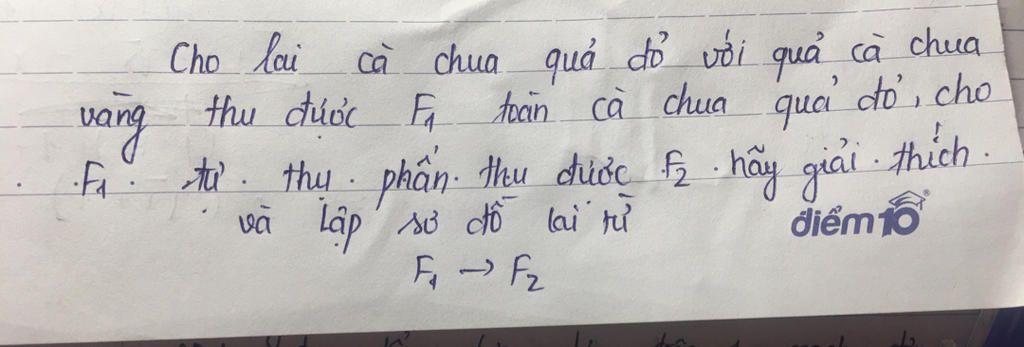 Cho lai cà chua quả đỏ với quả cà chua
vàng thu được F1 toàn cà chua quả đỏ, cho
F1 tự thụ phấn thu được F2. hãy giải thích.
và lập sơ đồ lai từ
điểm10
F1 → F2